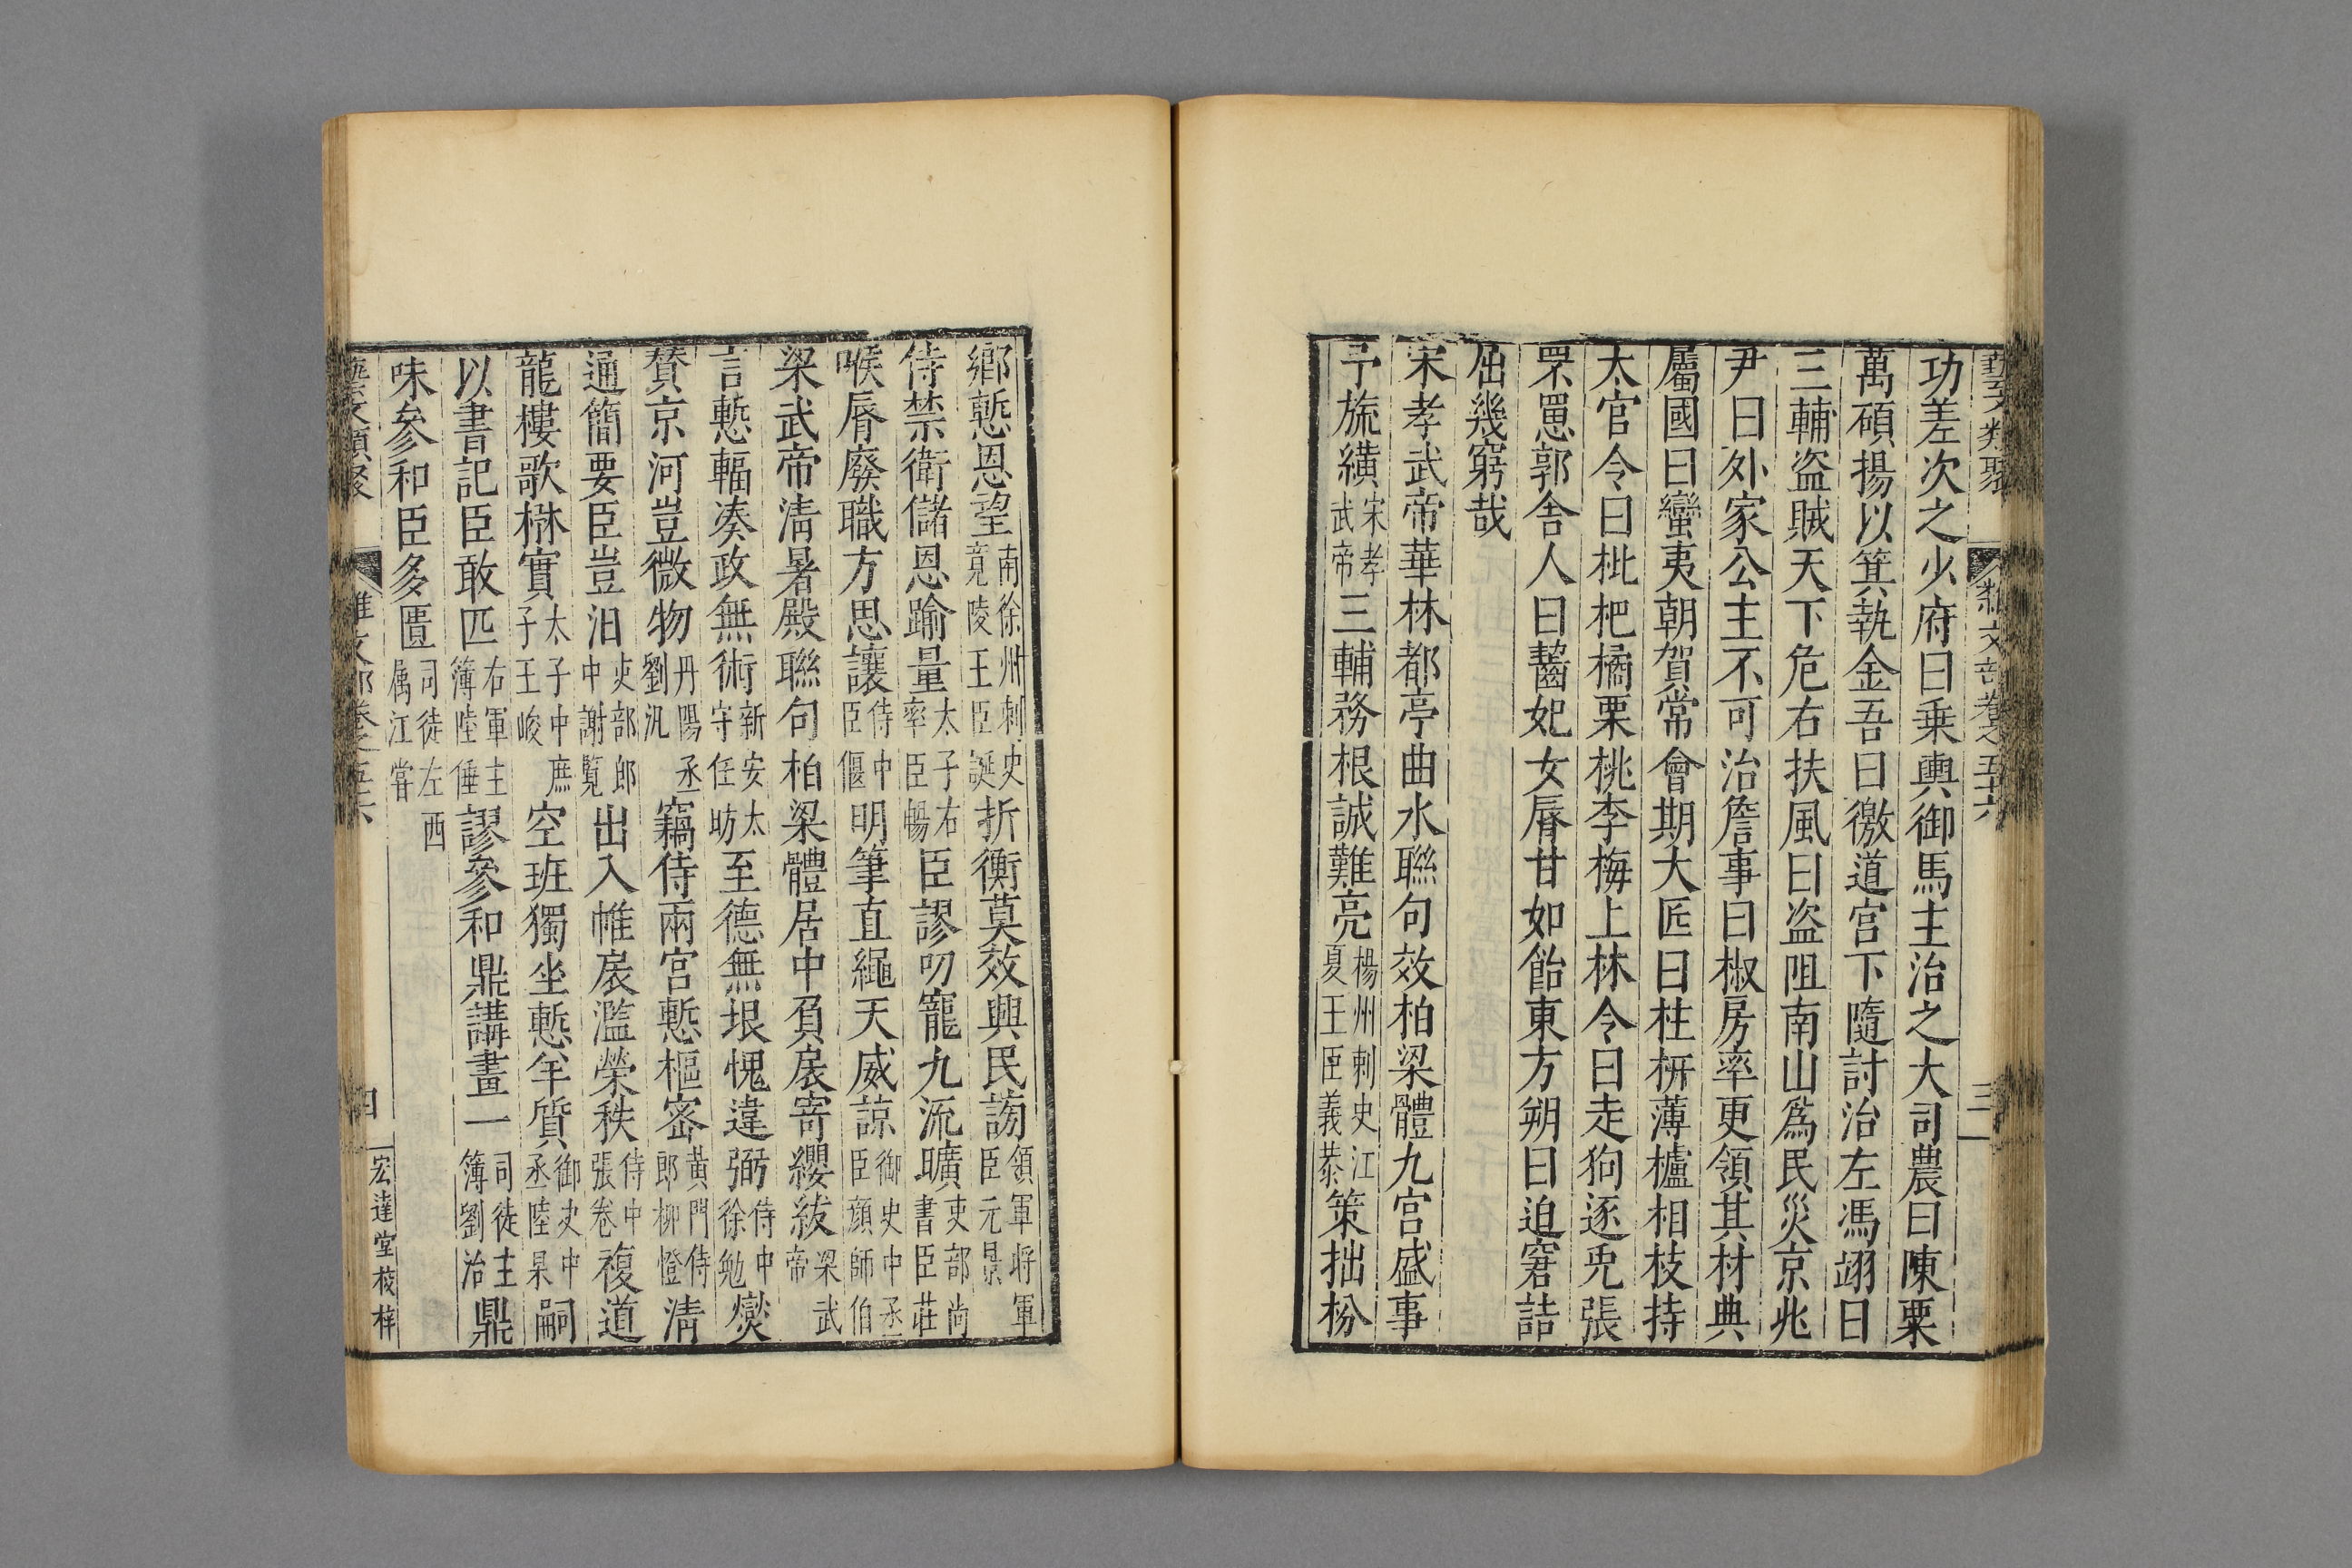 藝文類聚 雜文部卷之五十六 三
功差次之少府曰乗輿御馬主治之大司農曰陳粟
萬碩揚以箕執金吾曰徼道宫下隨討治左馮翊曰
三輔盗賊天下危右扶風曰盗阻南山爲民災京兆
尹曰外家公主不可治詹事曰椒房率更領其材典
屬國曰蠻夷朝賀常㑹期大匠曰柱枅薄櫨相枝持
太官令曰枇杷橘栗桃李梅上林令曰走狗逐兎張
罘罳郭舎人曰齧妃女脣甘如飴東方朔曰迫窘詰
屈幾窮哉
宋孝武帝華林都亭曲水聯句效柏梁體九宫盛事
予旒纊宋孝武帝三輔務根誠難亮楊州刺史江夏王臣義恭策拙枌
鄉慙恩望南徐州刺史竟陵王臣誕折衡莫效興民謗領軍將軍臣元景
侍禁衛儲恩踰量太子右率臣暢臣謬叨寵九流曠吏部尚書臣莊
喉脣廢職方思讓侍中臣偃明筆直繩天威諒御史中丞臣顔師伯
梁武帝清暑殿聯句柏梁體居中負扆寄纓紱梁武帝
言慙輻凑政無術新安太守任昉至德無垠愧違弼侍中徐勉爕
賛京河豈微物丹陽丞劉汎竊侍兩宫慙樞宻黄門侍郎柳憕清
通簡要臣豈汩吏部郎中謝覧出入帷扆濫榮秩侍中張卷複道
龍樓歌楙實太子中庶子王峻空班獨坐慙羊質御史中丞陸杲嗣
以書記臣敢匹右軍主簿陸倕謬參和鼎講畫一司徒主簿劉洽鼎
味参和臣多匱司徒左西属江葺
藝文類聚 雜文部卷之五十六 四 宏達堂校梓